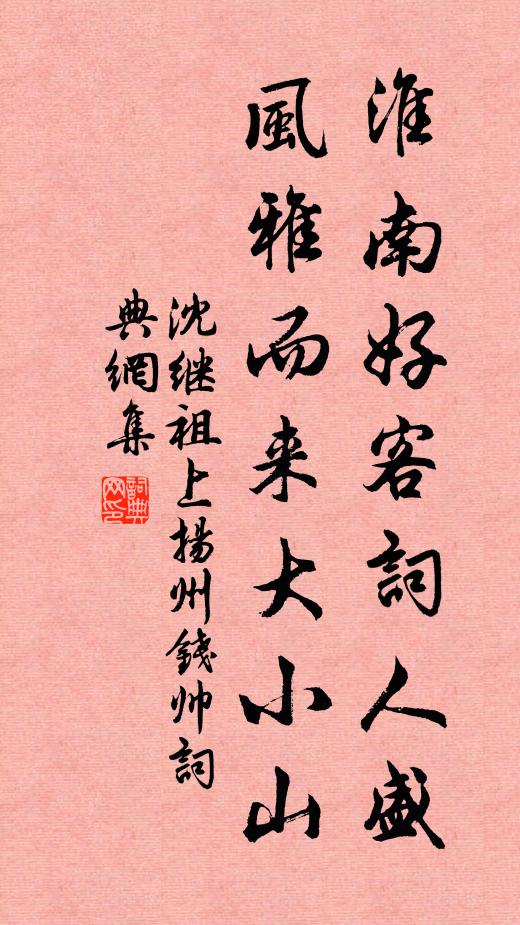 淮南好客詞人盛
風雅而来大小山
沈继祖上揚州錢帅詞
典網集
詞典網印